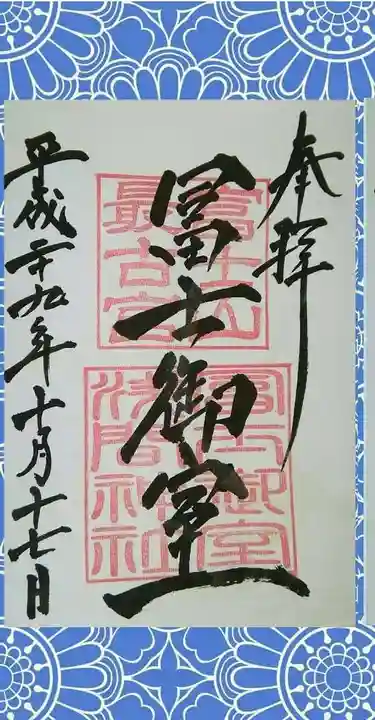 奉拝
冨士御室
富士山
最古宮
冨士御室
浅間神社
平成二十九年十月十七日